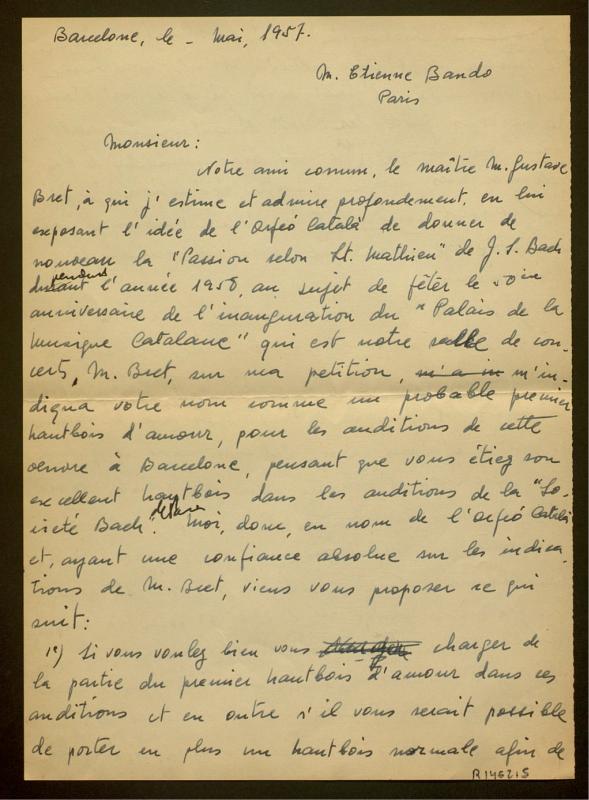 Barcelone, le - Mai, 1957.
M. Etienne Bando
Paris
Monsieur:
Notre ami comun, le maître M. Gustave
Bret, à qui j'estime et admire profondement, en lui
exposant l'idée de l'Orfeó Català de donner de
nouveau la "Passion selon St. Mathieu" de J. S. Bach
pendant
durant l'année 1958, au sujet de fêter le 50ème
anniversaire de l'inauguration du "Palais de la
Musique Catalane" qui est notre salle de con-
certs, M. Bret, sur ma petition, m'a in m'in-
diqua votre nom comme un probable premier
hautbois d'amour, pour les auditions de cette
oeuvre à Barcelone, pensant que vous étiez son
excellent hautbois dans les auditions de la "So-
cieté Bach". Moi, donc, en nom de l'Orfeó Català
et, ayant une confiance absolue sur les indica-
tions de M. Bret, viens vous proposer ce qui
suit:
1º) Si vous voulez bien vous charger de
la partie du premier hautbois d'amour dans ces
auditions et en outre s'il vous serait possible
de porter en plus un hautbois normale afin de
R.1462.5